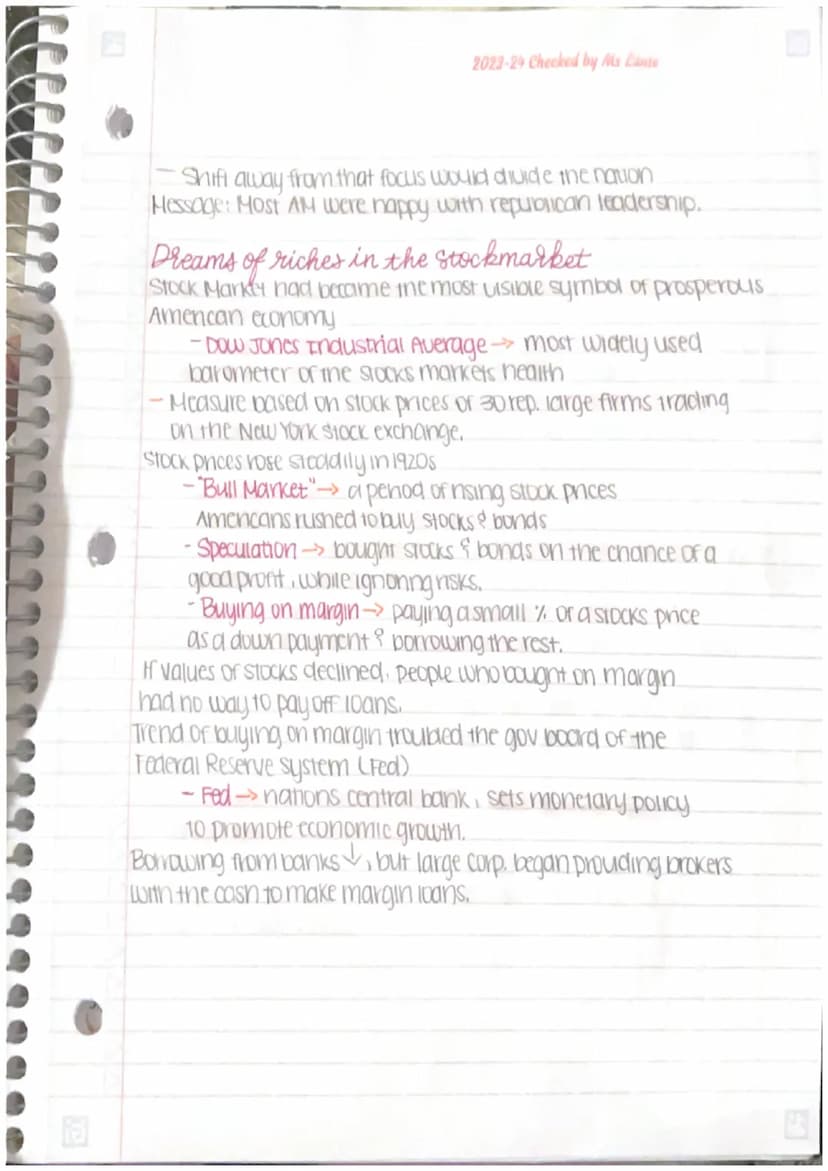 2023-24 Checked by Ms
— Shift away from that focus would divide the nation
Message: Most AM were happy with republican leadership.
Dreams of riches in the stockmarket
Stock Market had become the most visible symbol of prosperous
American economy
- Dow Jones Industrial Average → most widely used
barometer of the stocks markets health
- Measure based on stock prices of 30 rep. large firms trading
on the New York stock exchange.
Stock prices rose steadily in 1920s
- "Bull Market" → a period of rising stock prices
Americans rushed to buy stocks & bonds
- Speculation → bought stocks & bonds on the chance of a
good profit, while ignoring risks.
- Buying on margin → paying a small % of a stocks price
as a down payment & borrowing the rest.
If values of stocks declined, people who bought on margin
had no way to pay off loans.
Trend of buying on margin troubled the gov board of the
Federal Reserve System (Fed)
- Fed → nations central bank, sets monetary policy
to promote economic growth.
Borrowing from banks ↓, but large corp. began providing brokers
with the cash to make margin loans.